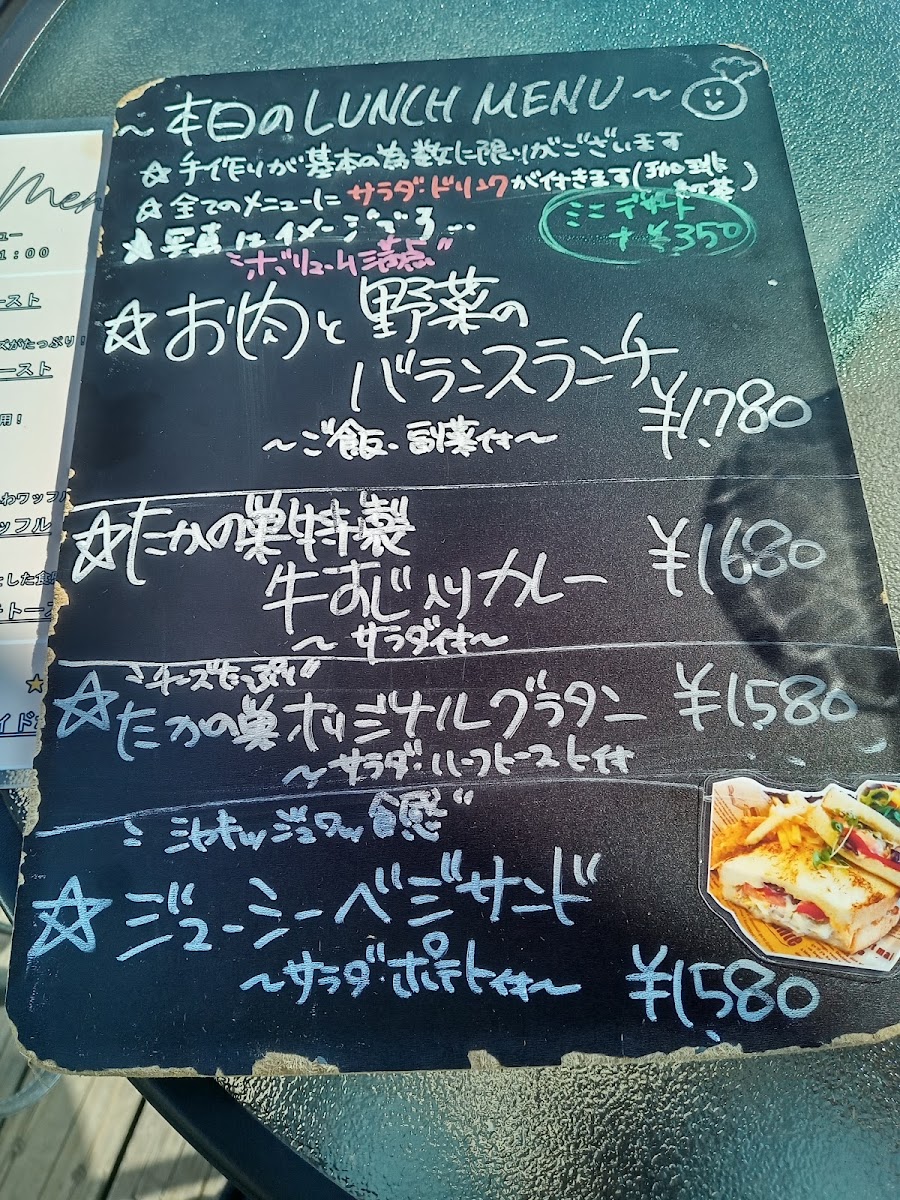 ～本日のLUNCH MENU～
☆手作りが基本の為数に限りがございます
☆全てのメニューにサラダ・ドリンクが付きます(珈琲 紅茶)
★写真はイメージです…
ミニデザート
+¥350
"ボリューム満点"
☆お肉と野菜の
バランスランチ
¥1,780
～ご飯・副菜付～
☆たかの巣特製
牛すじ入りカレー
¥1680
～サラダ付～
"チーズたっぷり"
☆たかの巣オリジナルグラタン ¥1,580
～サラダ・ハーフトースト付
"シャキッジュワッ食感"
☆ジューシーベジサンド
～サラダ・ポテト付～
¥1,580
Men
ュー
1:00
ースト
ズがたっぷり!
ースト
用!
わワッフル
ッフル
とした食
トース
イド